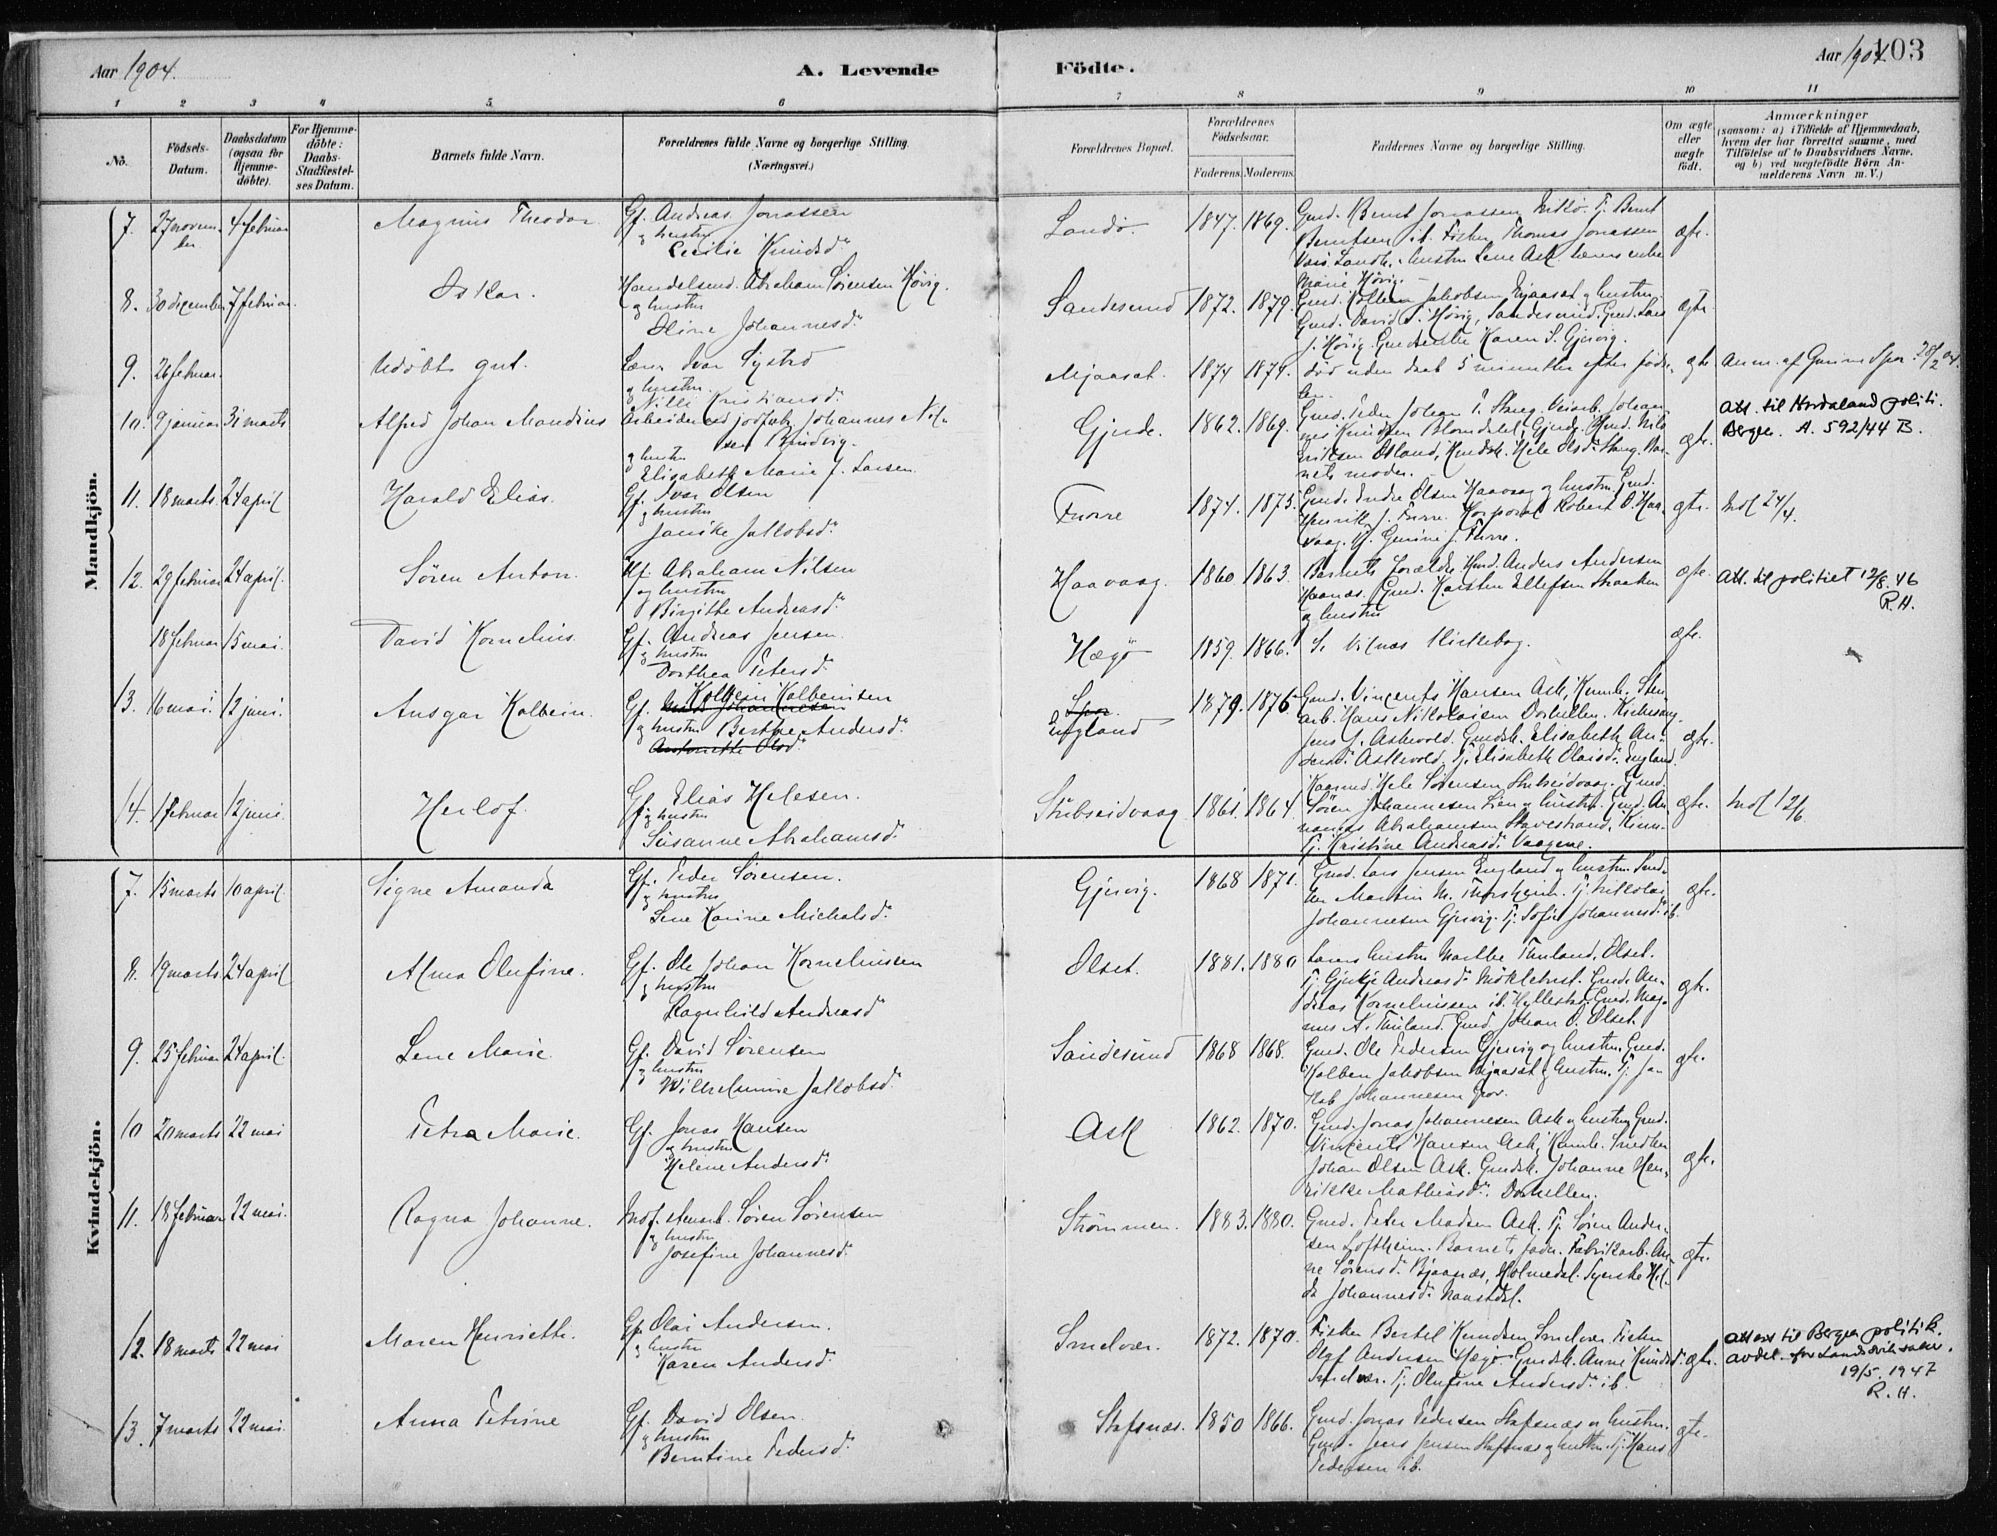 Aar 1904.
A. Levende Födte.
Aar 1904. 103
1 2 3 4 5 6 7 8 9 10 11
No.
Födsels-Datum.
Daabsdatum (ogsaa for Hjemme-döbte).
For Hjemme-döbte: Daabs-Stadfæstel-ses Datum.
Barnets fulde Navn.
Forældrenes fulde Navne og borgerlige Stilling. (Næringsvei.)
Forældrenes Bopæl.
Forældrenes Födselsaar.
Faderens. Moderens.
Faddernes Navne og borgerlige Stilling.
Om ægte eller uægte födt.
Anmærkninger
(saasom: a) i Tilfælde af Hjemmedaab, hvem der har forrettet samme, med Tilföielse af to Daabsvidners Navne, og b) ved uægtefödte Börn An-melderens Navn m. V.)
Mandkjön.
7. 27 novem-ber 4 februar Magnus Theodor. Gf. Andreas Jonassen
og hustru
Cecilie Knudsd.
Landø 1847. 1869. Gmd. Bernt Jonassen
Berntsen ib. Fisker Thomas Jonassen
ægte.
8. 30 dezember 7 februar. Oskar. Handelsmd. Abraham Sørensen Høvig.
og hustru
Oline Johannesd.
Sandesund 1872. 1879. Marie Høvig.
Gmd. Kolben Jakobsen Mjaasat og hustru
Gmd. David S. Høvig, Sandesund. Gmd. Lars
J. Høvig. Karen S. Gjervig.
ægte.
9. 26 februar. Udöbt gut. Lærer Ivar Systad
og hustru
Nilli Kristiansd.
Mjaasat. 1874 1874. död uden daab 5 minutter efter föds-
len.
ægte. Anm. af Gunine Spor 28/2 04.
10. 9 januar 31 marts Alfred Johan Mandius Arbeider Johannes Nil-
sen Rindvig.
og hustru
Elisabeth Marie J. Larsen.
Gjerde. 1862. 1869. Gmd. Peder Johan
nes Knudsen Blomdalet, Gjerde
Eriksen Østland
nets moder.
ægte. Att. til Hordaland politi.
Bergen. A. 592/44 B.
11. 18 marts 24 april Harald Elias. Gf. Ivar Olsen
og hustru
Janike Jakobsd.
Furre 1874. 1875. Gmd. Endre Olsen Haavaag og hustru. Gmd.
Henrik J. Furre. Korporal Robert O. Haa-
vaag. Gurine J. Furre.
ægte. Indf 24/4.
12. 29 februar 24 april. Søren Anton. Abraham Nilsen
og hustru
Birgitte Andreasd.
Haavaag. 1860 1863. Barnets forældre. Anders Andersen
Haanæs. Gmd. Karsten Ellefsen Straaken
og hustru
ægte. Att. til politiet 12/8. 46
R.H.
18 februar 15 mai. David Kornelius. Gf. Andreas Jensen.
og hustru
Dorthea Petersd.
Hægø 1859. 1866. S. Vilnæs Kirkebog. ægte.
13. 16 mai. 12 juni. Ansgar Kolbein. Gf. Kolbein Kolbeinsen
og hustru Berthe Andersd.
England 1879. 1876 Gmd. Vincents Hansen Ask, Sten
arb. Hans Nikolaisen Dorhellen. Kirkesang.
Jens J. Askevold. Gmdsk. Elisabeth An-
dersd. Askevold. Pj. Elisabeth Olaisd. England.
ægte.
14. 1 februar 12 juni. Herlof. Gf. Elias Helesen.
og hustru
Susanne Abrahamsd.
Stubseidvaag 1861. 1864. Kaarmd. Hele Sørensen Stubseidvaag. Gmd.
Søren Johannesen Lien og hustru. Gmd. An-
nanias Abrahamsen Stavestrand, Kinn.
Pj. Kristine Andreasd. Vaagene.
ægte. Indf 12/6
Kvindekjön.
7. 15 marts 10 april. Signe Amanda Gf. Peder Sørensen.
og hustru
Lene Karine Michalsd.
Gjervig. 1868 1871. Gmd. Lars Jensen England og hustru.
Martin M. Thorsheim. Pj. Nikolai
Johannesen Gjervig. Pj. Sofie Johannesd. ib.
ægte.
8. 19 marts 24 april Alma Olufine. Gf. Ole Johan Korneliussen
og hustru
Ragnhild Andreasd
Olset. 1881. 1880 Lærers hustru Marthe Thuland, Olset.
Pj. Gjertje Andreasd. Mikletvedt. Gmd. An-
dreas Kornelinssen ib. Hyllestad. Gmd. Mag-
nus A. Thuland. Gmd. Johan O. Olset.
ægte.
9. 25 februar 24 april. Lene Marie. Gf. David Sørensen
og hustru
Wilhelmine Jakobsd.
Sandesund 1868 1868. Gmd. Ole Pedersen Gjervig og hustru. Gmd.
Kolben Jakobsen Mjaasat og hustru. Pj. Ja-
kob Johannesen Spor.
ægte.
10 20 marts 22 mai Petra Marie. Gf. Jonas Hansen
og hustru
Helene Andersd.
Ask 1862. 1870. Gmd. Jonas Johannesen Ask og hustru. Gmd.
Vincents Hansen Ask,
Johan Olsen Ask. Gmdsk. Johanne Hen-
rikke Mathiasd. Dorhellen.
ægte.
11. 18 februar 22 mai. Ragna Johanne. Søren Sørensen
og hustru
Josefine Johannesd.
Strømmen. 1883. 1880. Gmd. Peter Madsen Ask. Pj. Søren Ander-
sen Loftheim. Barnets fader. Fabrikarb. An-
ne Sørensd. Bjaanæs, Holmedal. Syerske Hil-
da Johannesd. Naustdal.
ægte.
12. 18 marts 22 mai Maren Henriette. Gf. Olai Andersen.
og hustru
Karen Andersd.
Smelvær. 1872. 1870. Fisker Bertel Knudsen, Smelvær. Fisker
Olaf Andersen Hægø. Gmdsk. Anne Knudsd.
Smelvær. Pj. Olufine Andersd. ib.
ægte. Attest til Bergen politik.
avdel. for landssviksaker.
19/5. 1947
R.H.
13. 7 marts 22 mai. Anna Petrine Gf. David Olsen.
og hustru
Berntine Pedersd.
Stafsnæs. 1850 1866. Gmd. Jonas Pedersen Stafsnæs og hustru.
Gmd. Jens Jensen Stafsnæs og hustru. Pj. Hans
Pedersen ib.
ægte.